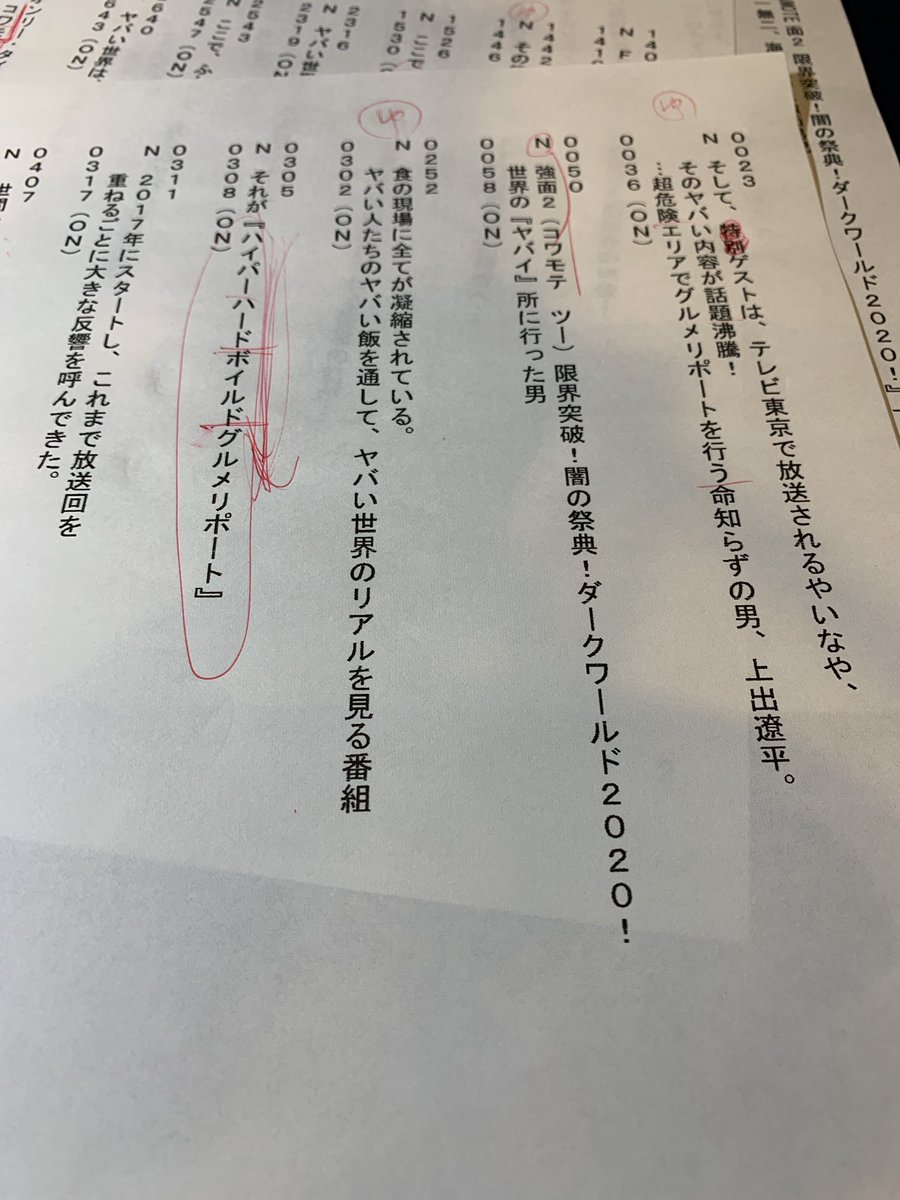 強面2 限界突破!闇の祭典!ダークワールド2020!』
0023
N そして、特別ゲストは、テレビ東京で放送されるやいなや、
そのヤバい内容が話題沸騰!
…超危険エリアでグルメリポートを行う命知らずの男、上出遼平。
0036(ON)
0050
N 強面2(コワモテ ツー)限界突破!闇の祭典!ダークワールド2020!
世界の『ヤバイ』所に行った男
0058(ON)
0252
N 食の現場に全てが凝縮されている。
ヤバい人たちのヤバい飯を通して、ヤバい世界のリアルを見る番組
0302(ON)
0305
N それが『ハイパーハードボイルドグルメリポート』
0308(ON)
0311
N 2017年にスタートし、これまで放送回を
重ねるごとに大きな反響を呼んできた。
0317(ON)
0407
N
1442
N その
1446
1526
N ここで
1530(
2316
N ヤバい世
2319(ON
2543
N ここで、
2547(ON)
ヤバい世界は、